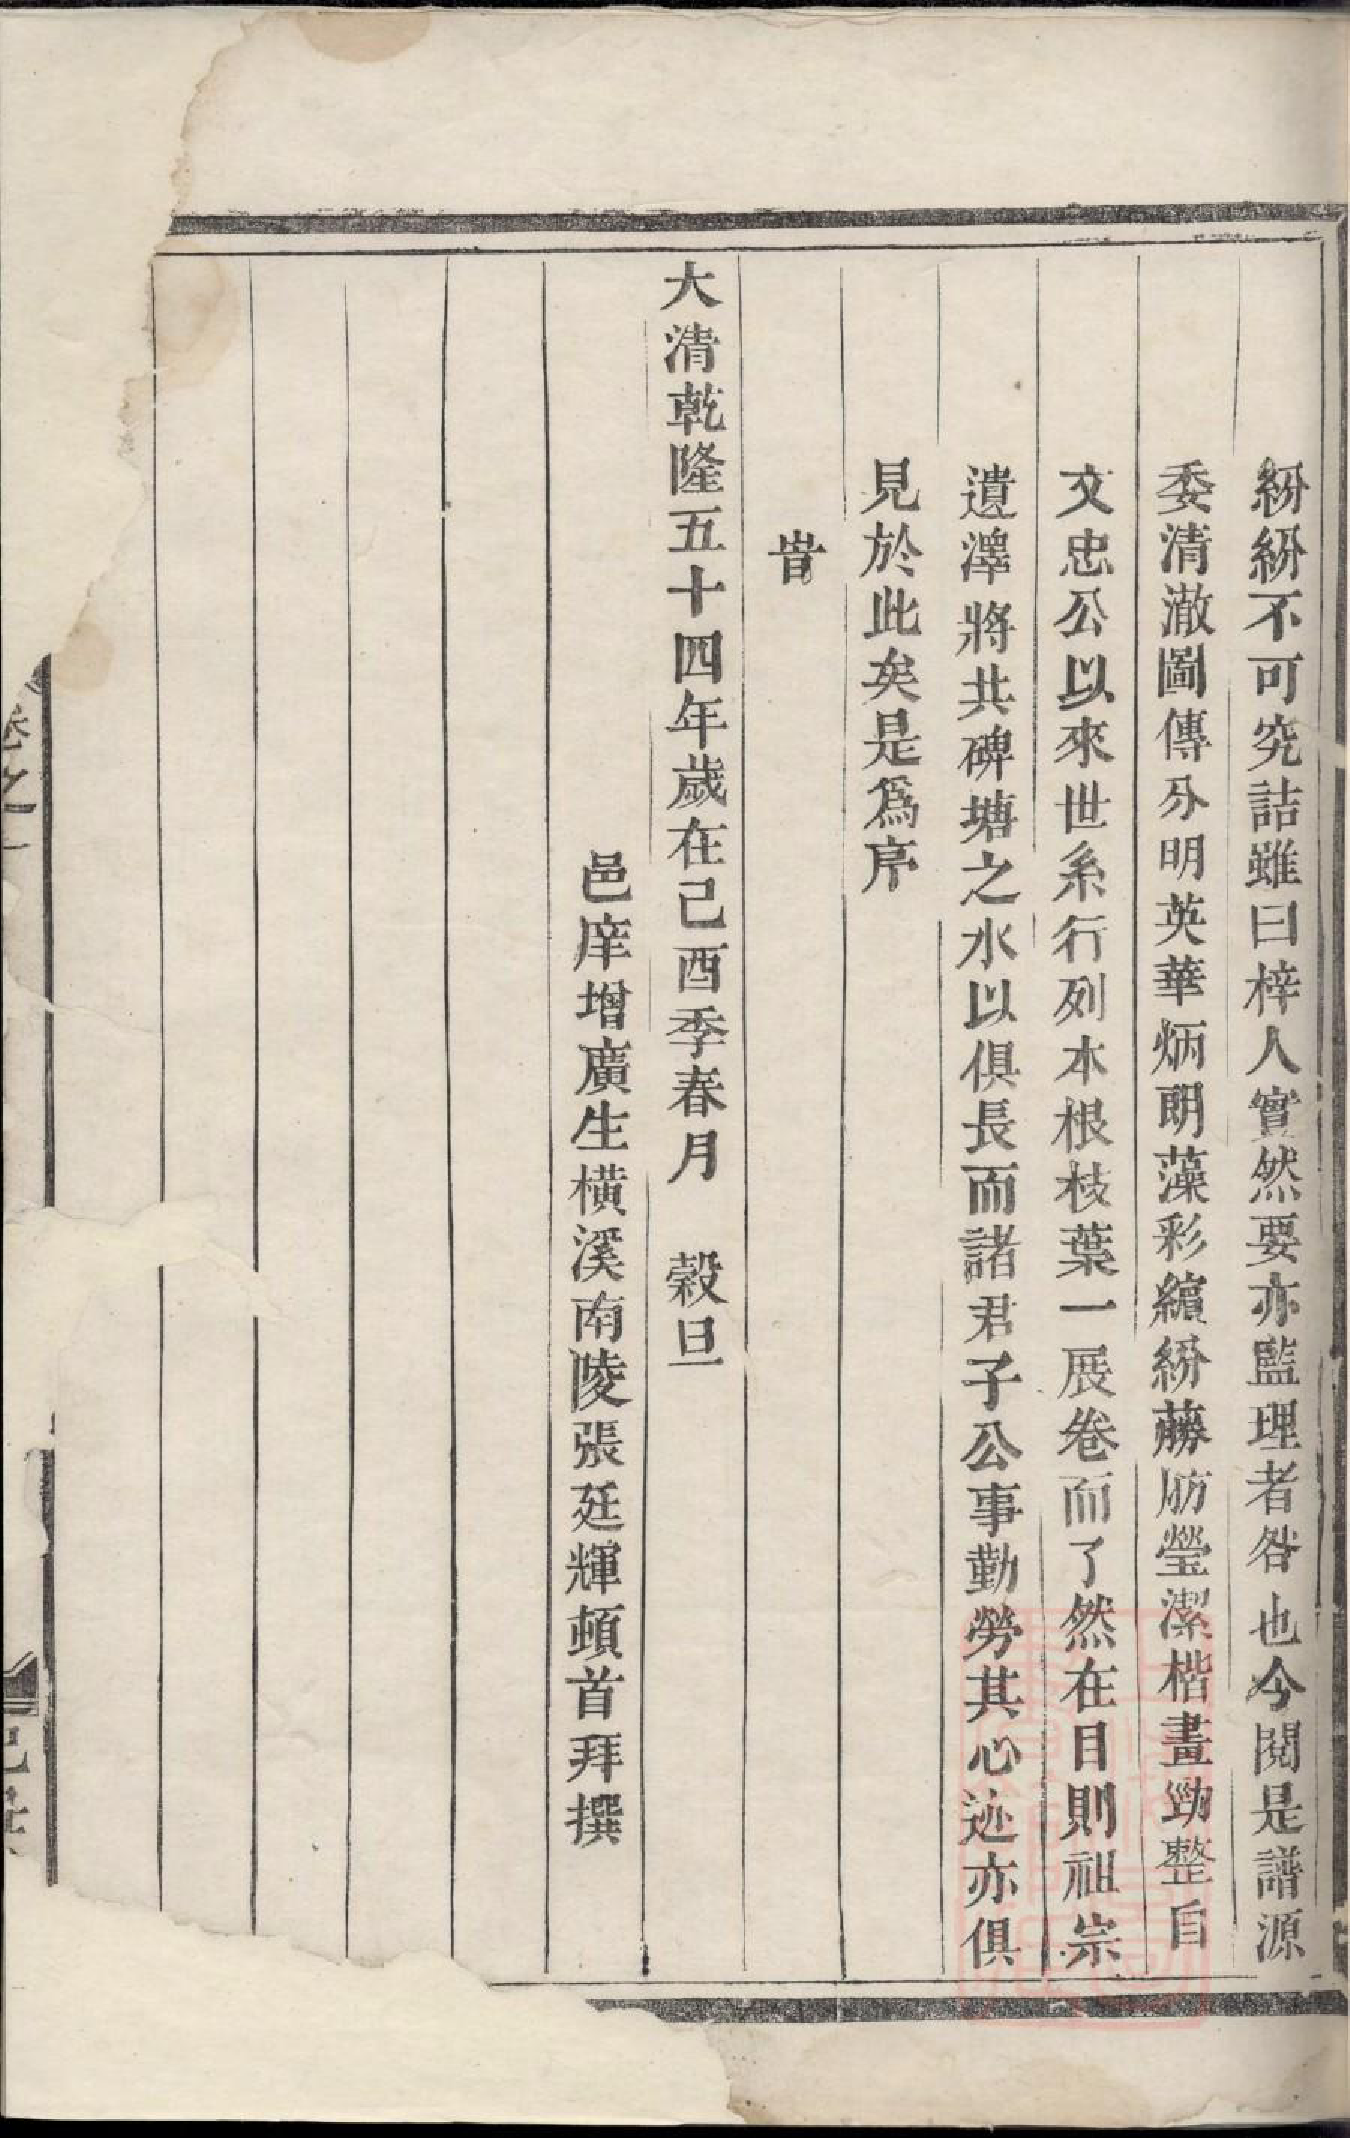 紛紛不可究詰雖曰梓人實然要亦監理者咎也今閱是譜源
委清澈圖傳分明英華炳朗藻彩繽紛藤舫瑩潔楷畫勁整自
文忠公以來世系行列本根枝葉一展卷而了然在目則祖宗
遺澤將共碑塘之水以俱長而諸君子公事勤勞其心迹亦俱
見於此矣是爲序
旹
大清乾隆五十四年歲在己酉季春月 榖旦
邑庠增廣生橫溪南陵張廷輝頓首拜撰
卷之